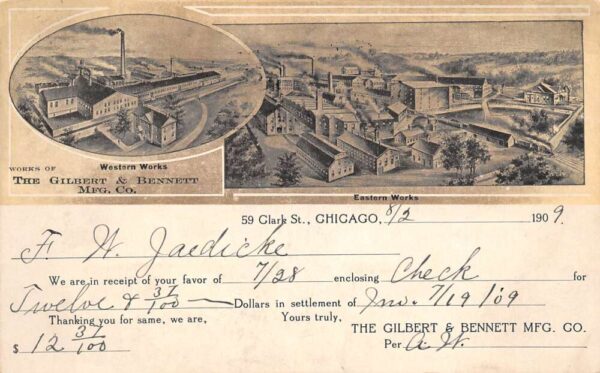 WORKS OF
Western Works
THE GILBERT & BENNETT
MFG. CO.
Eastern Works
59 Clark St., CHICAGO, 8/2 1909.
F. W. Jaedicke
We are in receipt of your favor of 7/28 enclosing Check for
Twelve & 37/100 Dollars in settlement of Inv. 7/19/09
Thanking you for same, we are, Yours truly,
THE GILBERT & BENNETT MFG. CO.
$ 12 37/100 Per A. W.